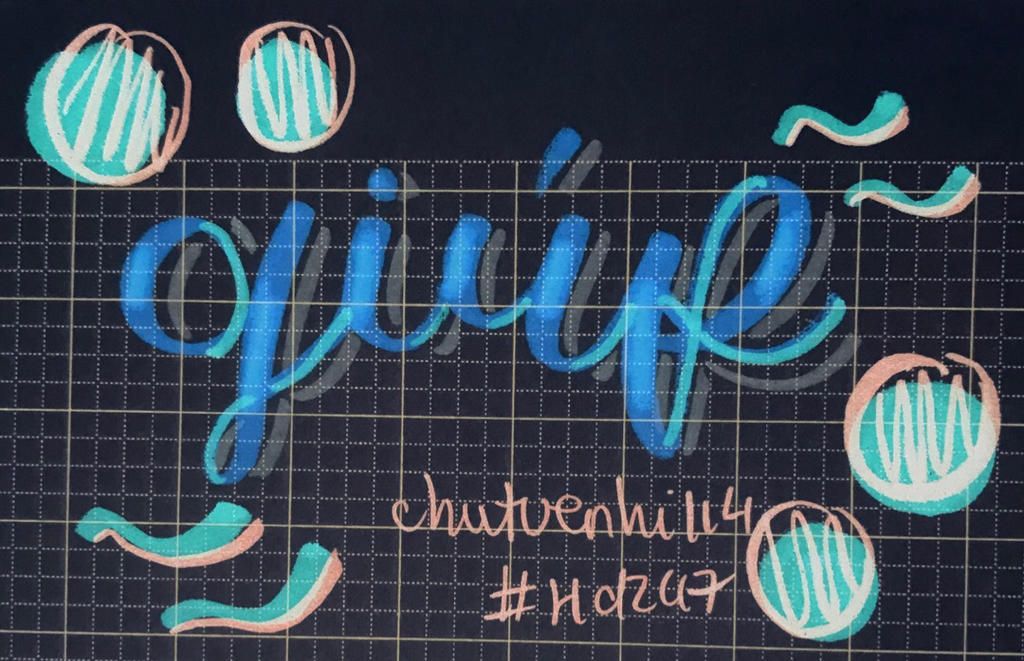 giúp
chutvenhi114
#Hdz47